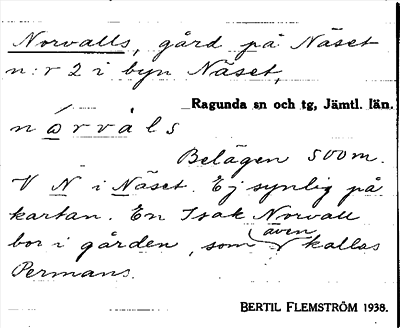 Norvalls, gård på Näset
n:r 2 i byn Näset,
Ragunda sn och tg, Jämtl. län.
nó̱rvàls
Belägen 500 m.
V N i Näset. Ej synlig på
kartan. En Isak Norvall
bor i gården, som även kallas
Permans.
BERTIL FLEMSTRÖM 1938.